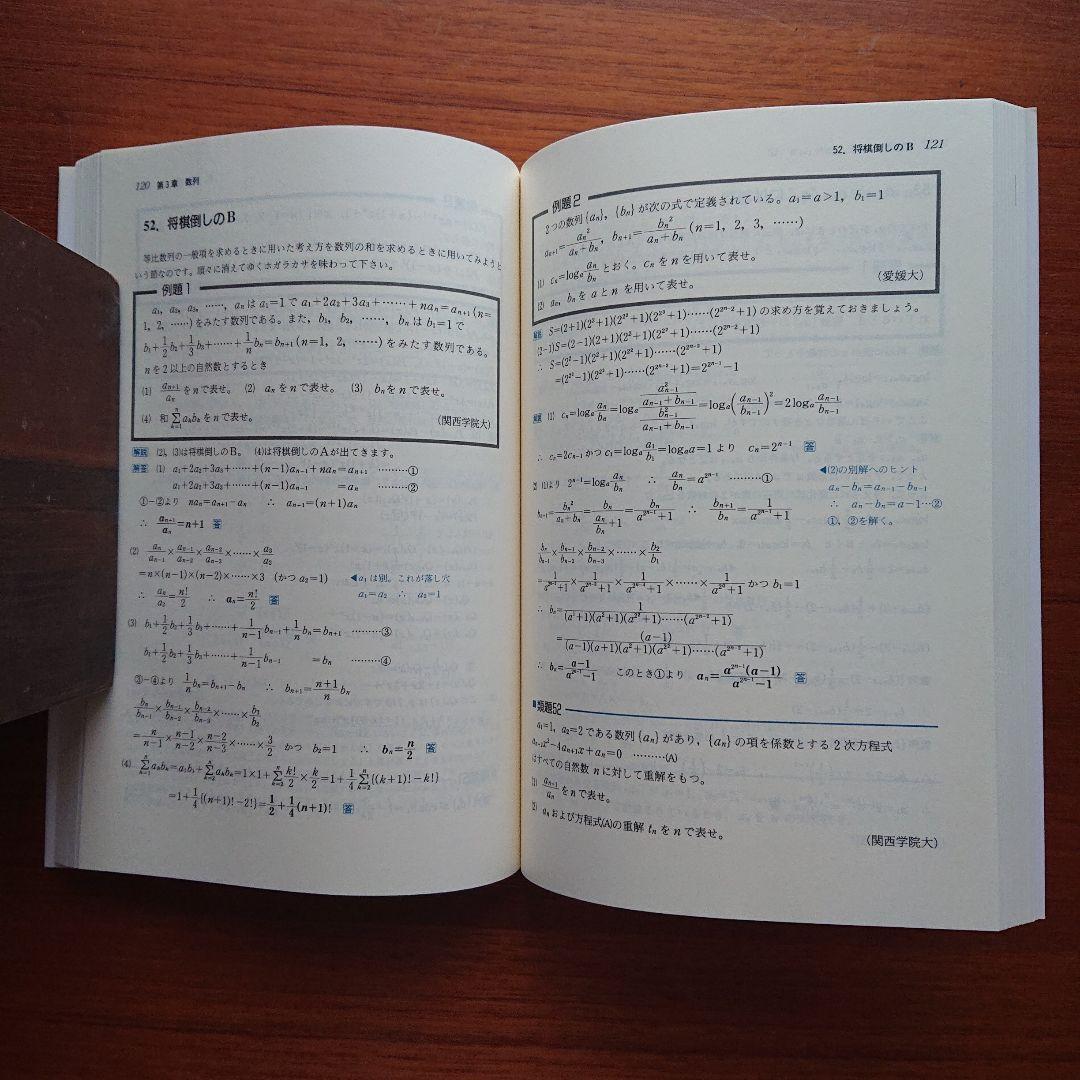 120 第3章 数列
52. 将棋倒しのB
等比数列の一般項を求めるときに用いた考え方を数列の和を求めるときに用いてみようと
いう節なのです。順々に消えてゆくホガラカサを味わって下さい。
例題1
a₁, a₂, a₃, ……, aₙ は a₁=1 で a₁+2a₂+3a₃+……+naₙ=aₙ₊₁(n=
1, 2, ……)をみたす数列である。また, b₁, b₂, ……, bₙ は b₁=1 で
b₁+1/2 b₂+1/3 b₃+……+1/n bₙ=bₙ₊₁(n=1, 2, ……)をみたす数列である。
n を 2 以上の自然数とするとき
(1) aₙ₊₁/aₙ を n で表せ。 (2) aₙ を n で表せ。 (3) bₙ を n で表せ。
(4) 和 Σ[k=1,n] aₖbₖ を n で表せ。 (関西学院大)
解説 (2), (3)は将棋倒しのB。 (4)は将棋倒しのAが出てきます。
解答 (1) a₁+2a₂+3a₃+……+(n−1)aₙ₋₁+naₙ=aₙ₊₁ ………①
a₁+2a₂+3a₃+……+(n−1)aₙ₋₁ =aₙ ………②
①−②より naₙ=aₙ₊₁−aₙ ∴ aₙ₊₁=(n+1)aₙ
∴ aₙ₊₁/aₙ=n+1 答
(2) aₙ/aₙ₋₁×aₙ₋₁/aₙ₋₂×aₙ₋₂/aₙ₋₃×……×a₃/a₂
=n×(n−1)×(n−2)×……×3 (かつ a₂=1) ◀a₁ は別。これが落し穴
∴ aₙ/a₂=n!/2 ∴ aₙ=n!/2 答 a₁=a₂ ∴ a₂=1
(3) b₁+1/2 b₂+1/3 b₃+……+1/(n−1) bₙ₋₁+1/n bₙ=bₙ₊₁ ………③
b₁+1/2 b₂+1/3 b₃+……+1/(n−1) bₙ₋₁ =bₙ ………④
③−④より 1/n bₙ=bₙ₊₁−bₙ ∴ bₙ₊₁=(n+1)/n bₙ
bₙ/bₙ₋₁×bₙ₋₁/bₙ₋₂×bₙ₋₂/bₙ₋₃×……×b₃/b₂
=n/(n−1)×(n−1)/(n−2)×(n−2)/(n−3)×……×3/2 かつ b₂=1 ∴ bₙ=n/2 答
(4) Σ[k=1,n] aₖbₖ=a₁b₁+Σ[k=2,n] aₖbₖ=1×1+Σ[k=2,n] k!/2×k/2=1+1/4 Σ[k=2,n] {(k+1)!−k!}
=1+1/4{(n+1)!−2!}=1/2+1/4(n+1)! 答
52. 将棋倒しのB 121
例題2
2つの数列 {aₙ}, {bₙ} が次の式で定義されている。a₁=a>1, b₁=1
aₙ₊₁=aₙ²/(aₙ+bₙ), bₙ₊₁=bₙ²/(aₙ+bₙ) (n=1, 2, 3, ……)
(1) cₙ=logₐ aₙ/bₙ とおく。cₙ を n を用いて表せ。
(2) aₙ, bₙ を a と n を用いて表せ。 (愛媛大)
解説 S=(2+1)(2²+1)(2^(2²)+1)(2^(2³)+1)……(2^(2ⁿ⁻²)+1) の求め方を覚えておきましょう。
(2−1)S=(2−1)(2+1)(2²+1)(2^(2²)+1)……(2^(2ⁿ⁻²)+1)
∴ S=(2²−1)(2²+1)(2^(2²)+1)……(2^(2ⁿ⁻²)+1)
=(2^(2²)−1)(2^(2²)+1)……(2^(2ⁿ⁻²)+1)=2^(2ⁿ⁻¹)−1
解説 (1) cₙ=logₐ aₙ/bₙ=logₐ (a²ₙ₋₁/(aₙ₋₁+bₙ₋₁))/(b²ₙ₋₁/(aₙ₋₁+bₙ₋₁))=logₐ(aₙ₋₁/bₙ₋₁)²=2logₐ aₙ₋₁/bₙ₋₁
∴ cₙ=2cₙ₋₁ かつ c₁=logₐ a₁/b₁=logₐa=1 より cₙ=2ⁿ⁻¹ 答
(2) (1)より 2ⁿ⁻¹=logₐ aₙ/bₙ ∴ aₙ/bₙ=a^(2ⁿ⁻¹) ………①
◀(2)の別解へのヒント
aₙ−bₙ=aₙ₋₁−bₙ₋₁
∴ aₙ−bₙ=a−1…②
①, ②を解く。
bₙ₊₁=bₙ²/(aₙ+bₙ)=bₙ/(aₙ/bₙ+1)=bₙ/(a^(2ⁿ⁻¹)+1) ∴ bₙ₊₁/bₙ=1/(a^(2ⁿ⁻¹)+1)
bₙ/bₙ₋₁×bₙ₋₁/bₙ₋₂×bₙ₋₂/bₙ₋₃×……×b₂/b₁
=1/(a^(2ⁿ⁻²)+1)×1/(a^(2ⁿ⁻³)+1)×1/(a^(2ⁿ⁻⁴)+1)×……×1/(a^(2⁰)+1) かつ b₁=1
∴ bₙ=1/((a¹+1)(a²+1)(a^(2²)+1)……(a^(2ⁿ⁻²)+1))
=(a−1)/((a−1)(a+1)(a²+1)(a^(2²)+1)……(a^(2ⁿ⁻²)+1))
∴ bₙ=(a−1)/(a^(2ⁿ⁻¹)−1) このとき①より aₙ=a^(2ⁿ⁻¹)(a−1)/(a^(2ⁿ⁻¹)−1) 答
類題52
a₁=1, a₂=2 である数列 {aₙ} があり, {aₙ} の項を係数とする 2 次方程式
aₙ₊₂x²−4aₙ₊₁x+aₙ=0 ………(A)
はすべての自然数 n に対して重解をもつ。
(1) aₙ₊₁/aₙ を n で表せ。
(2) aₙ および方程式(A)の重解 tₙ を n で表せ。
(関西学院大)